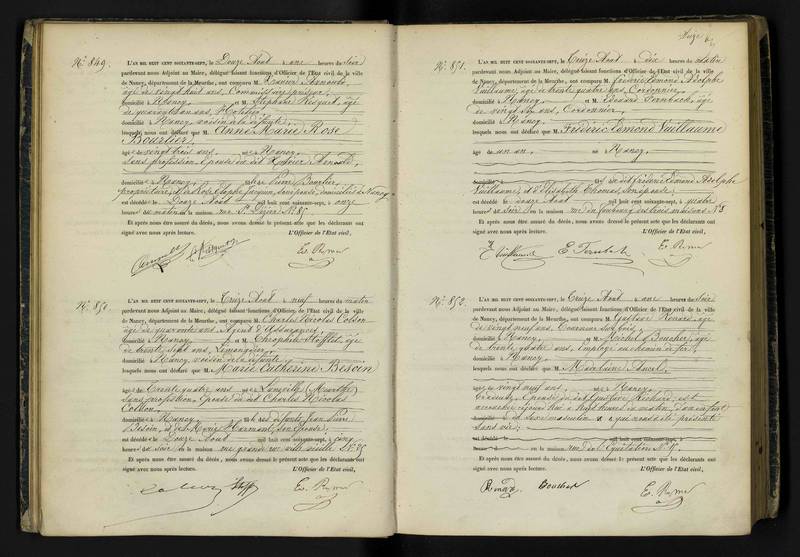 N.° 849.
L'AN MIL HUIT CENT SOIXANTE-SEPT, le Douze Août à onze heures du
pardevant nous Adjoint au Maire, délégué faisant fonctions d'Officier de l'Etat civil de la ville
de Nancy, département de la Meurthe, ont comparu M. Xavier
âgé de vingt huit ans, Commissaire priseur,
domicilié à Nancy et M. Stéphane âgé
de quarante ans,
domicilié à Nancy, voisin de la défunte,
lesquels nous ont déclaré que M. Anne Marie Rose
Bourlier,
âgée de vingt trois ans née à Nancy
Sans profession, épouse du dit Xavier
domiciliée à Nancy, Pierre Bourlier,
propriétaire, son épouse, domiciliés à Nancy
est décédée le Douze Août mil huit cent soixante-sept, à onze
heures du matin en la maison rue St Dizier N.° 85
Et après nous être assuré du décès, nous avons dressé le présent acte que les déclarants ont
signé avec nous après lecture. L'Officier de l'Etat civil,
N.° 850.
L'AN MIL HUIT CENT SOIXANTE-SEPT, le Treize Août à neuf heures du matin
pardevant nous Adjoint au Maire, délégué faisant fonctions d'Officier de l'Etat civil de la ville
de Nancy, département de la Meurthe, ont comparu M. Charles Nicolas Colson
âgé de quarante ans, Agent d'Assurances,
domicilié à Nancy et M. Théophile
de trente sept ans, Limonadier,
domicilié à Nancy, voisin de la défunte
lesquels nous ont déclaré que M. Marie Catherine Besoin
âgée de Trente quatre ans née à Lunéville (Meurthe)
Sans profession, Epouse du dit Charles Nicolas
Colson,
domiciliée à Nancy, Jean Pierre
Besoin, et de Marie son épouse,
est décédée le Douze Août mil huit cent soixante-sept, à cinq
heures du soir en la maison grande rue ville vieille N.°
Et après nous être assuré du décès, nous avons dressé le présent acte que les déclarants ont
signé avec nous après lecture. L'Officier de l'Etat civil,
N.° 851.
L'AN MIL HUIT CENT SOIXANTE-SEPT, le Treize Août à dix heures du matin
pardevant nous Adjoint au Maire, délégué faisant fonctions d'Officier de l'Etat civil de la ville
de Nancy, département de la Meurthe, ont comparu M. Frédéric Edmond Adolphe
Vuillaume, âgé de trente quatre ans, Cordonnier,
domicilié à Nancy et M. Edouard âgé
de vingt six ans, Cordonnier,
domicilié à Nancy
lesquels nous ont déclaré que M. Frédéric Edmond Vuillaume
âgé de un an, né à Nancy,
domicilié à fils du dit Frédéric Edmond Adolphe
Vuillaume, et d'Elisabeth Thomas, son épouse
est décédé le douze Août mil huit cent soixante-sept, à quatre
heures du soir en la maison rue du faubourg des trois maisons N.°
Et après nous être assuré du décès, nous avons dressé le présent acte que les déclarants ont
signé avec nous après lecture. L'Officier de l'Etat civil,
N.° 852.
L'AN MIL HUIT CENT SOIXANTE-SEPT, le Treize Août à onze heures du
pardevant nous Adjoint au Maire, délégué faisant fonctions d'Officier de l'Etat civil de la ville
de Nancy, département de la Meurthe, ont comparu M. Gustave âgé
de vingt neuf ans, Tourneur sur bois,
domicilié à Nancy, et M. Michel Boucher, âgé
de trente quatre ans, employé au chemin de fer,
domicilié à Nancy
lesquels nous ont déclaré que M. Madelaine
âgée de vingt neuf ans, née à Nancy,
Epouse du dit Gustave est
accouchée à huit heures du matin, d'un enfant
du sexe masculin qui nous a été présenté
sans vie;
est décédé le mil huit cent soixante-sept, à
heures en la maison rue de l'Equitation N.°
Et après nous être assuré du décès, nous avons dressé le présent acte que les déclarants ont
signé avec nous après lecture. L'Officier de l'Etat civil,
Boucher